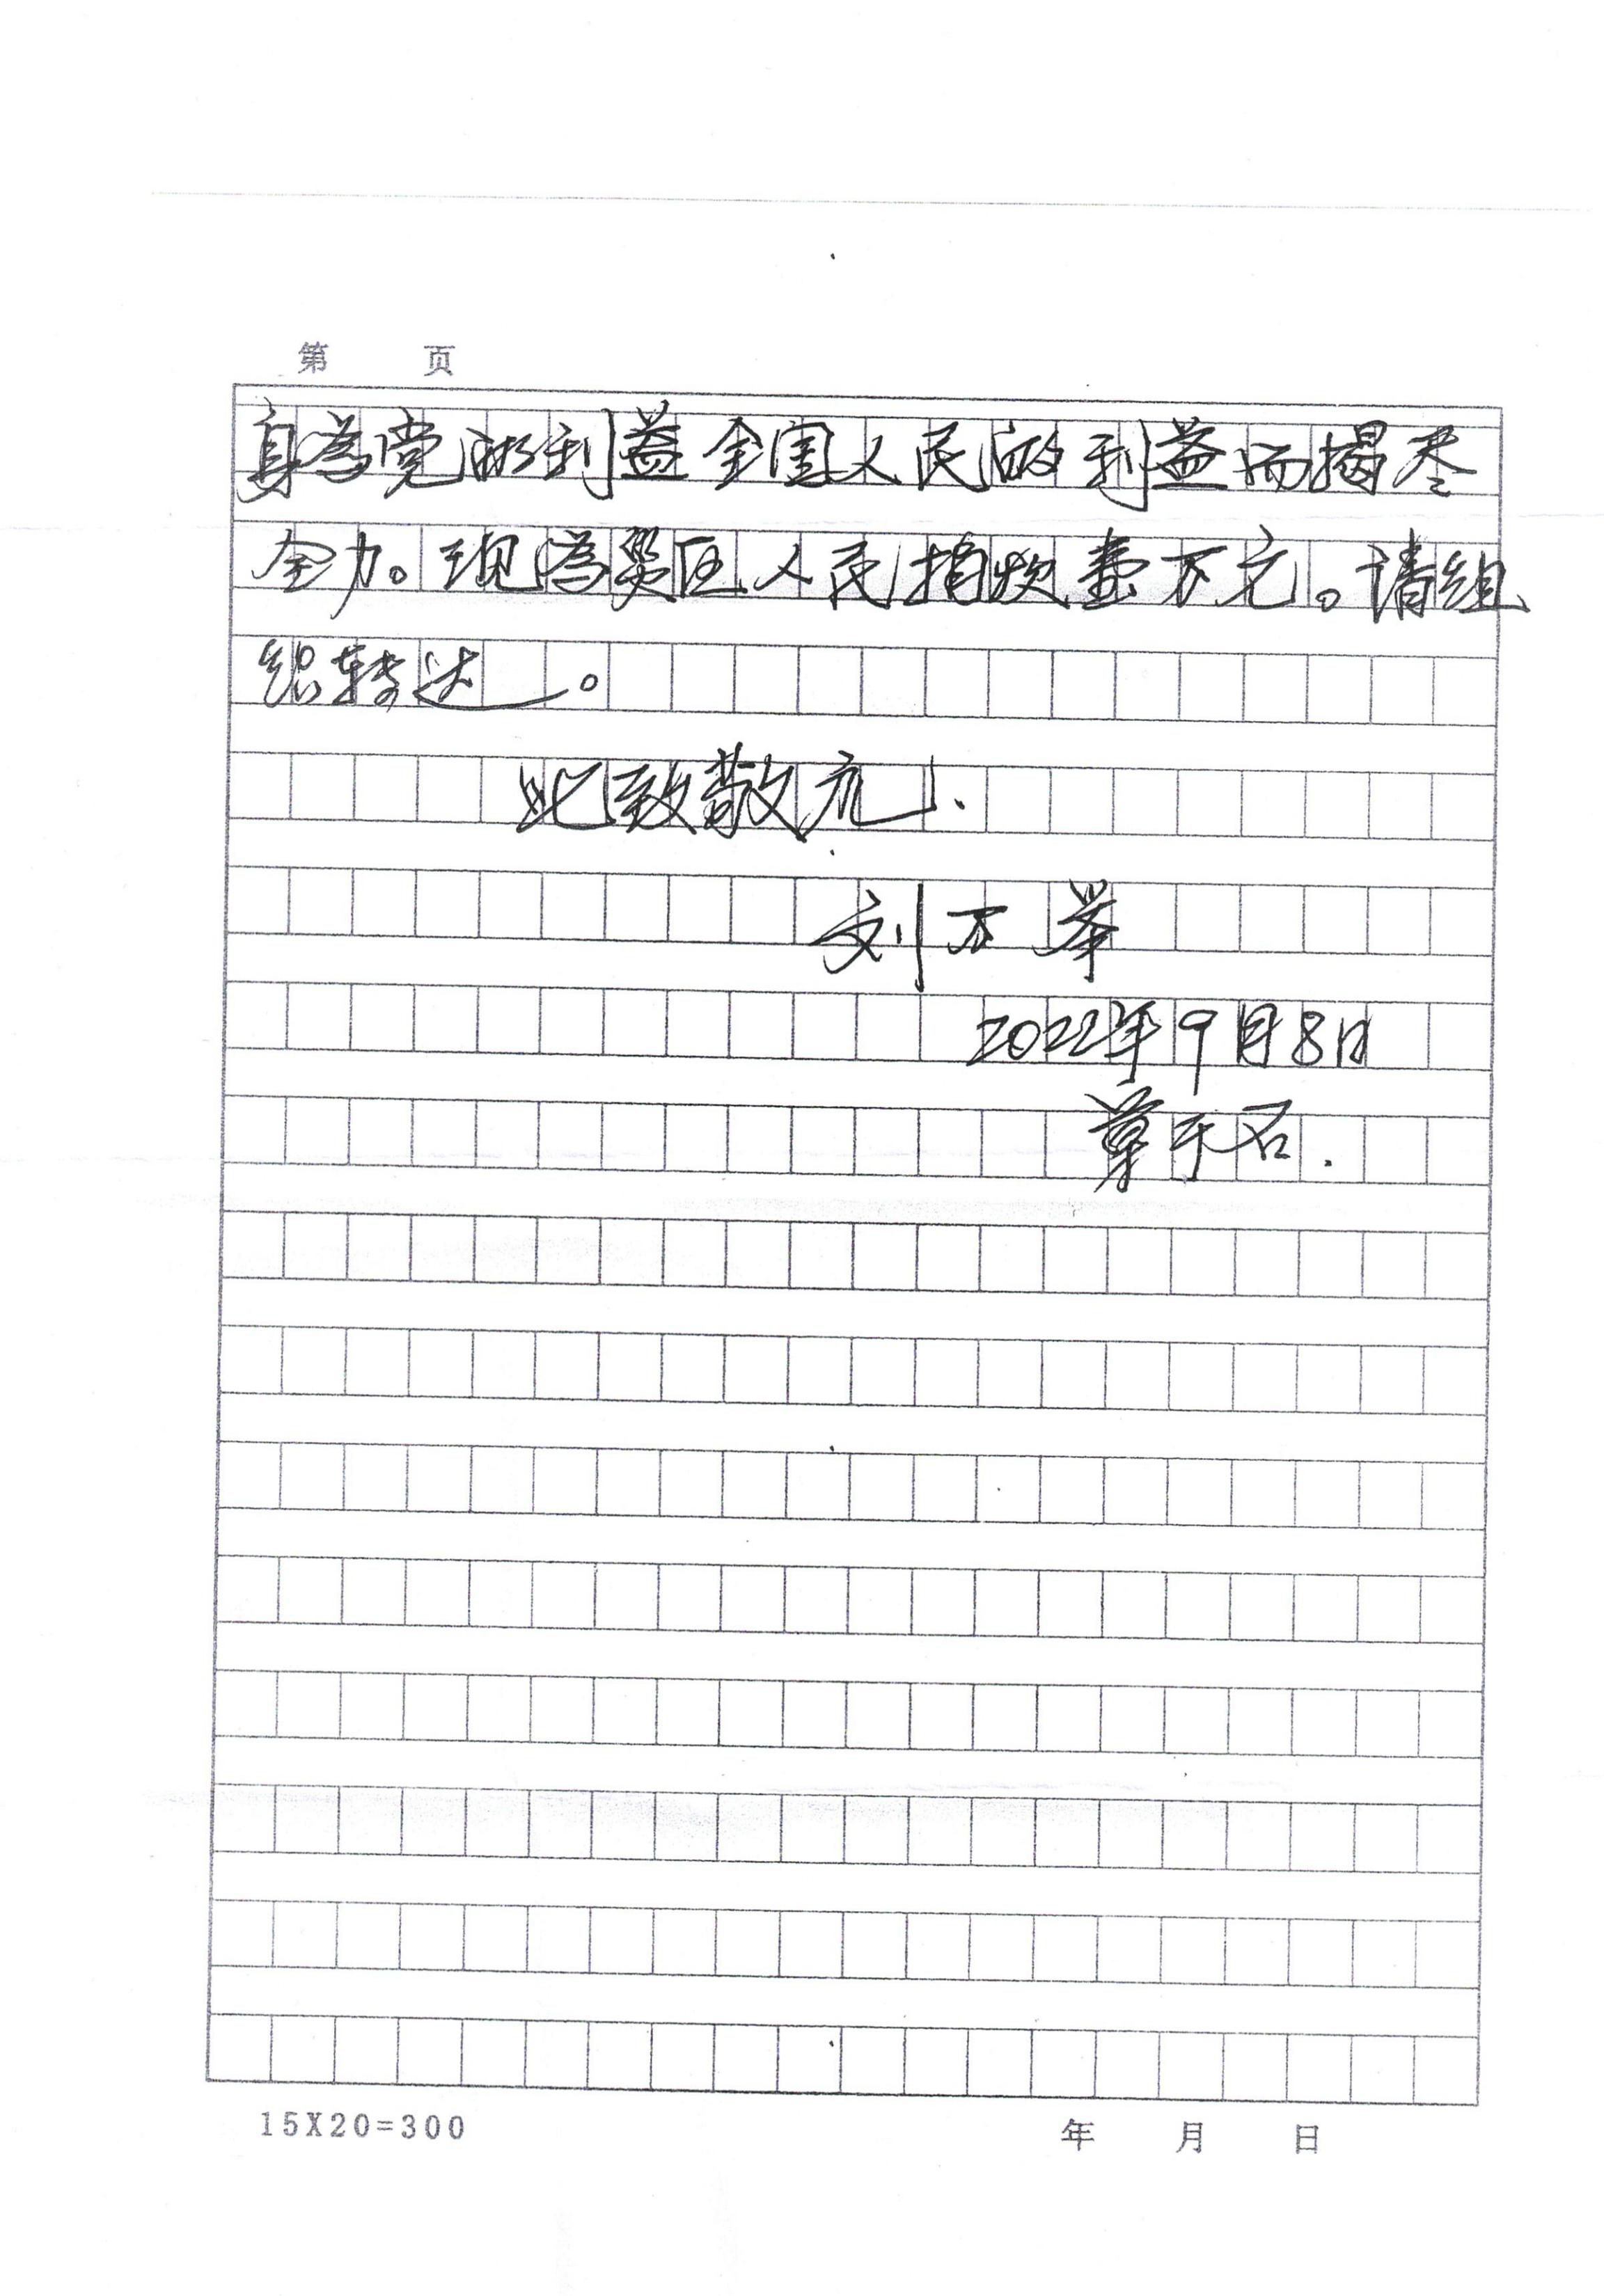 第 页
身为党的利益全国人民的利益而揭尽
全力。现为灾区人民捐款壹万元。请组
织转达。
此致敬礼!
刘万举
2022年9月8日
草于石.
15X20=300
年 月 日